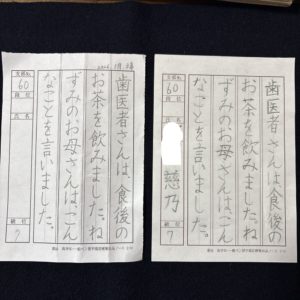 歯医者さんは、食後の
お茶を飲みました。ね
ずみのお母さんは、こん
なことを言いました。
支部No.
60
段位
氏名
級位
7
歯医者さんは、食後の
お茶を飲みました。ね
ずみのお母さんは、こん
なことを言いました。
支部No.
60
段位
慈乃
級位
7